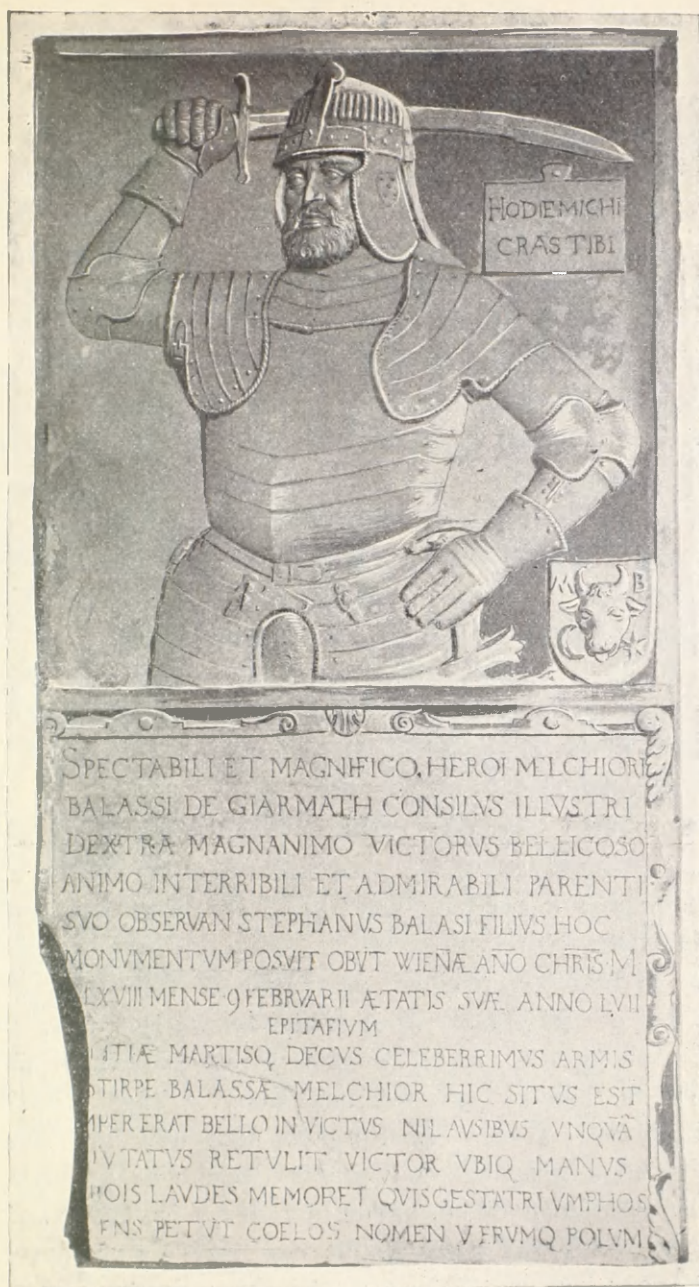 HODIE·MICHI
CRAS TIBI
B
SPECTABILI ET MAGNIFICO, HEROI MELCHIORI
BALASSI DE GIARMATH CONSILVS ILLVSTRI
DEXTRA MAGNANIMO VICTORVS BELLICOSO
ANIMO INTERRIBILI ET ADMIRABILI PARENTI
SVO OBSERVAN STEPHANVS BALASI FILIVS HOC
MONVMENTVM POSVIT OBVT WIEÑÆ AÑO CHRIS M
LXVIII MENSE 9 FEBRVARII ÆTATIS SVÆ ANNO LVII
EPITAFIVM
ITIÆ MARTISQ DECVS CELEBERRIMVS ARMIS
STIRPE BALASSÆ MELCHIOR HIC SITVS EST
MPER ERAT BELLO IN VICTVS NIL AVSIBVS VNQVÃ
VTATVS RETVLIT VICTOR VBIQ MANVS
OIS LAVDES MEMORET QVIS GESTA TRIVMPHOS
ENS PETVT COELOS NOMEN VERVMQ POLVM